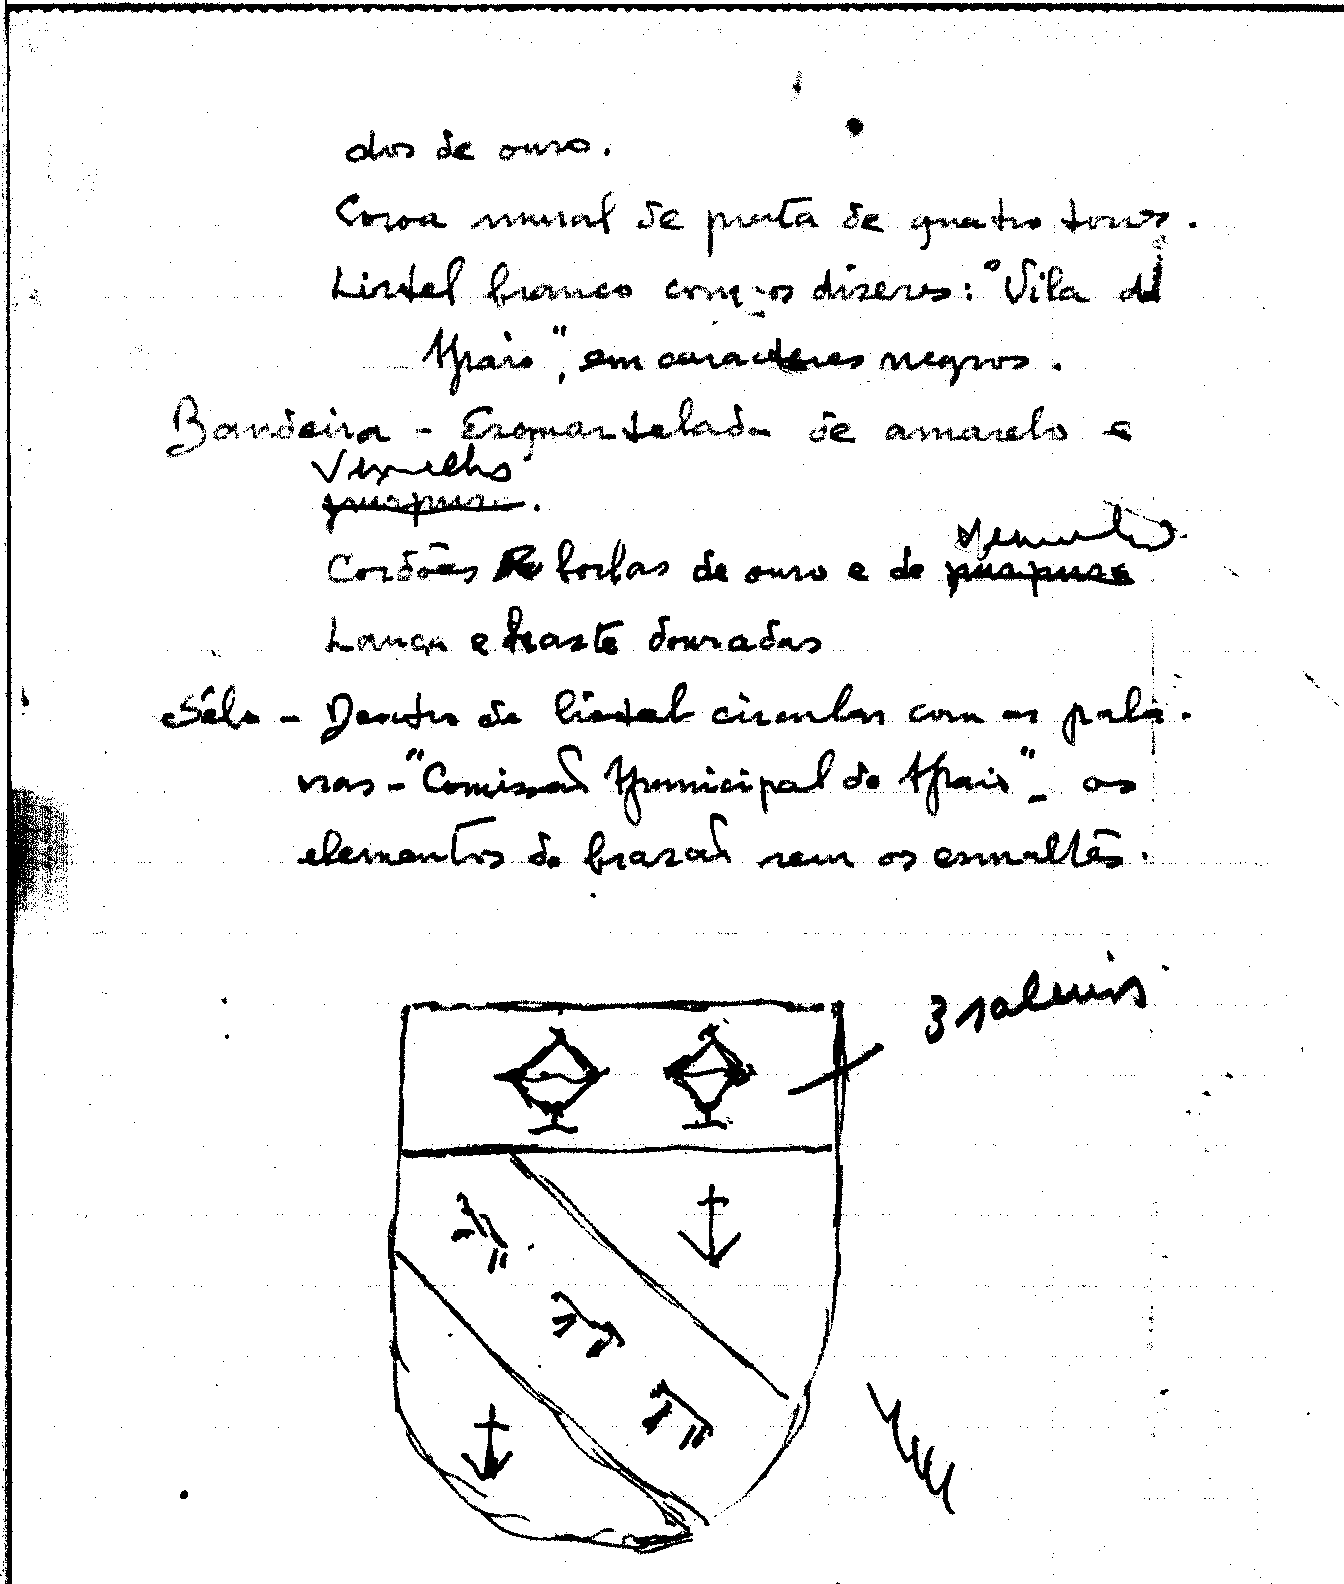 dos de ouro.
Coroa mural de prata de quatro torres.
Listel branco com os dizeres: "Vila do
Maio", em caracteres negros.
Bandeira - Esquartelada de amarelo e
vermelho
purpura.
Cordões e borlas de ouro e de purpura
vermelho.
Lança e haste douradas
Sêlo - Dentro de listel circular com as pala-
vras - "Comissão Municipal do Maio" - os
elementos do brazão sem os esmaltes.
3